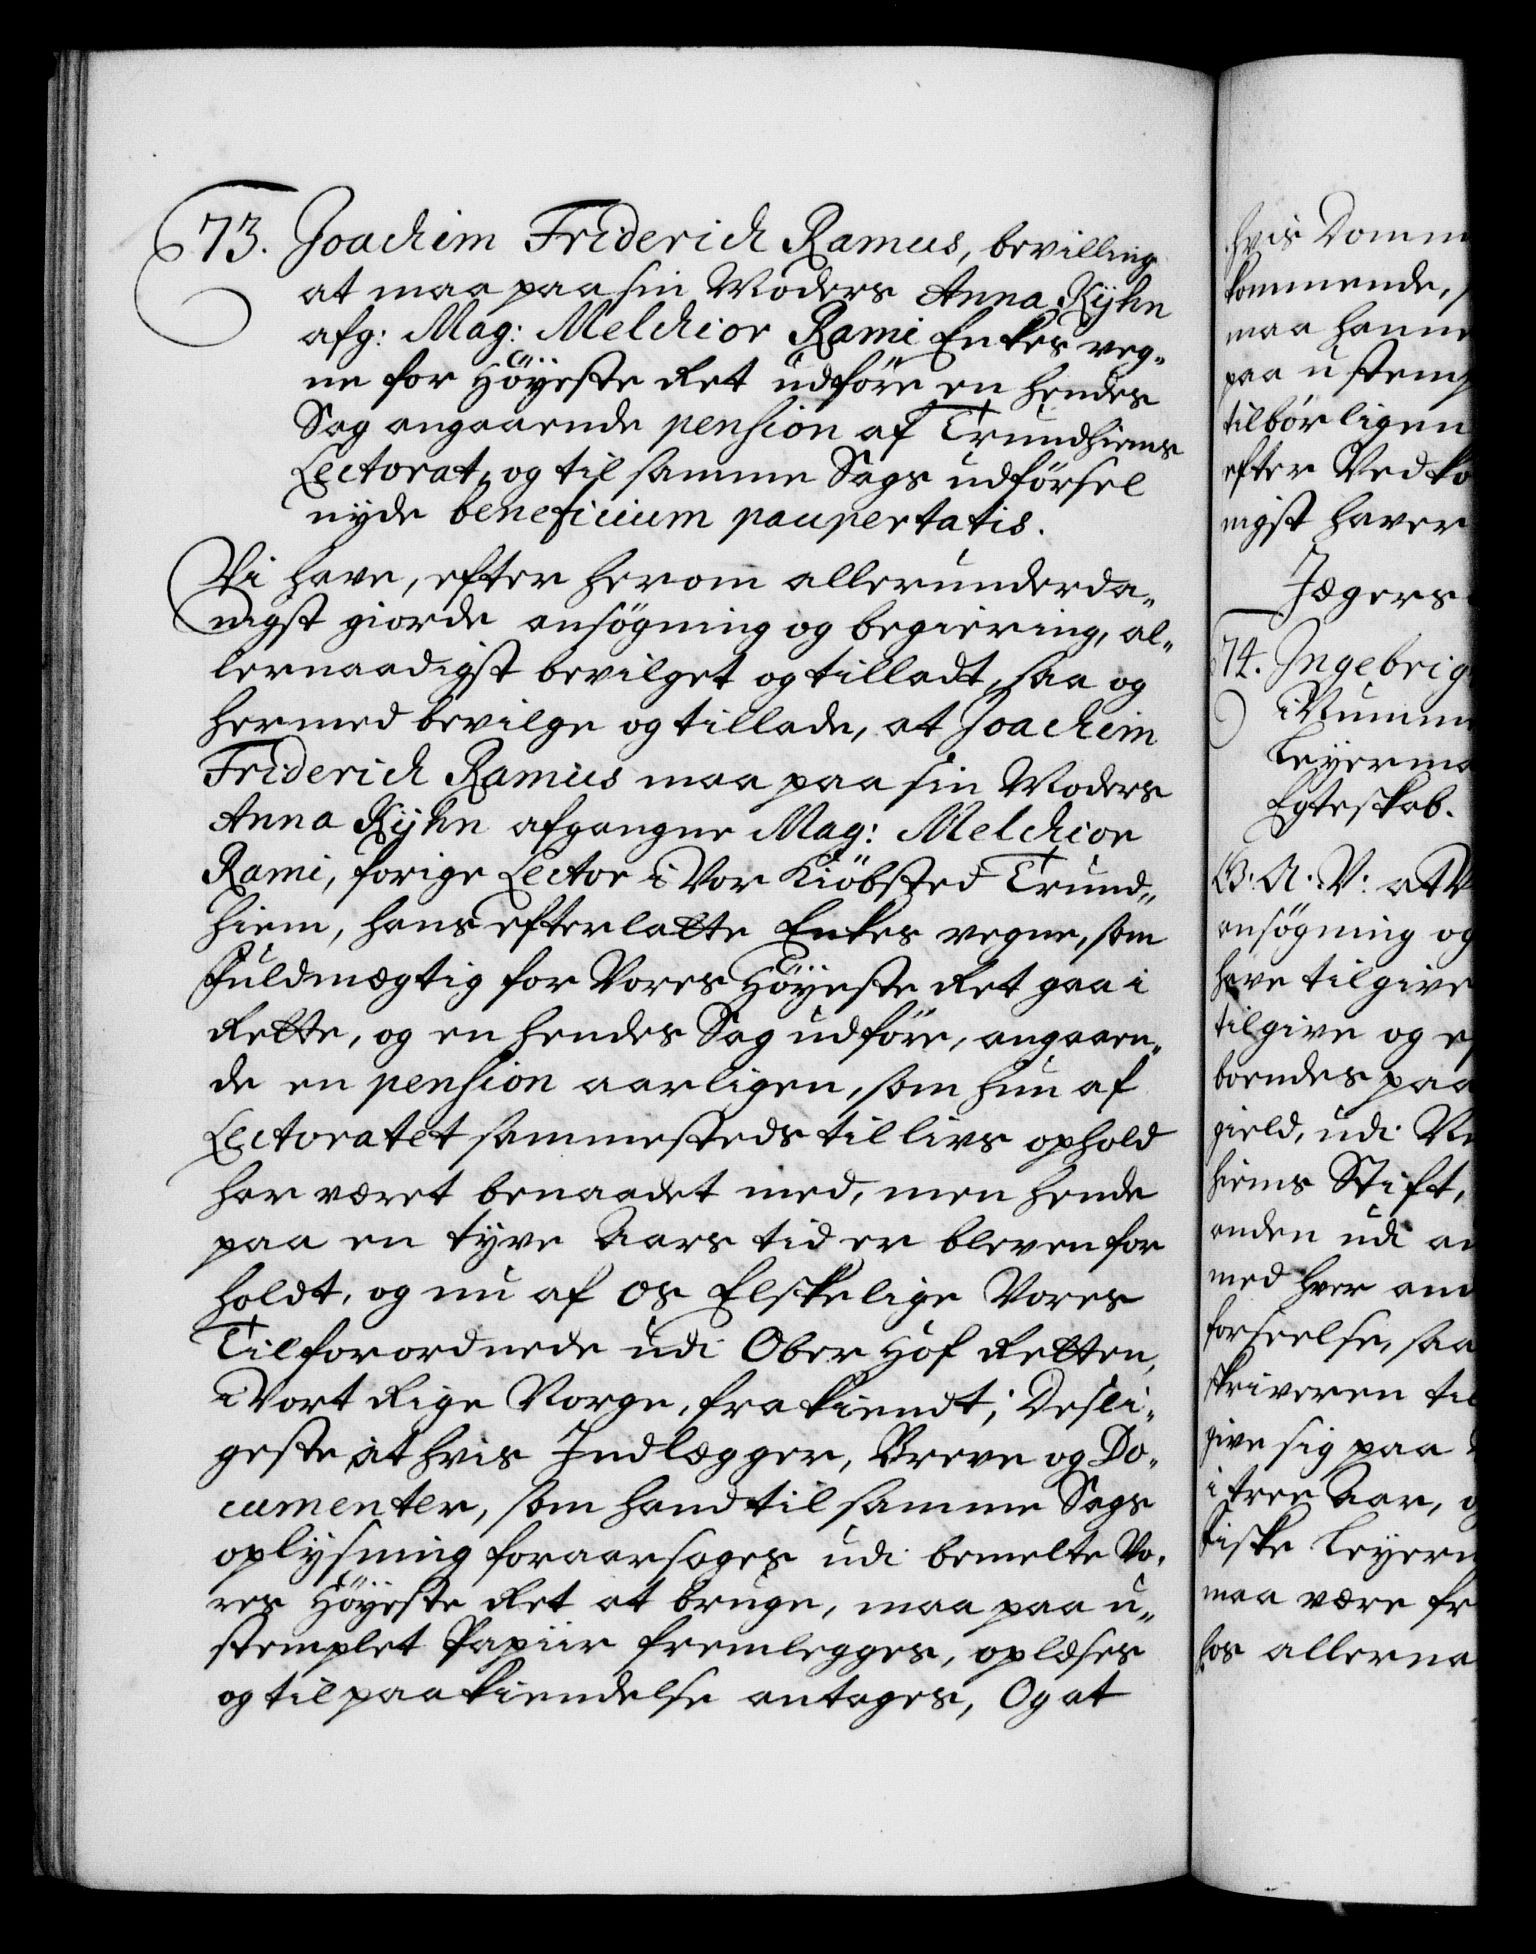 73. Joachim Friderich Ramus, bevilling
at maa paa sin Moders Anna Kyhn
afg: Mag: Melchior Rami Enkes veg-
ne for Höyeste Ret udföre en hendes
Sag angaaende pension af Trundhiems
Lectorat, og til samme Sags udförsel
nyde beneficium paupertatis.
Vi have, efter herom allerunderda-
nigst giorde ansögning og begiering, al-
lernaadigst bevilget og tilladt, saa og
hermed bevilge og tillade, at Joachim
Friderich Ramus maa paa sin Moders
Anna Kyhn afgangne Mag: Melchior
Rami, forige Lector i Vor Kiöbsted Trund-
hiem, hans efterlatte Enkes vegne, som
Fuldmægtig for Vores Höyeste Ret gaa i
Rette, og en hendes Sag udföre, angaaen-
de en pension aarligen, som hun af
Lectoratet sammesteds til livs ophold
har været benaadet med, men hende
paa en tyve Aars tid er bleven for
holdt, og nu af os Elskelige Vores
Tilforordnede udi Ober Hof Retten,
i Vort Rige Norge, frakiendt; Desli-
geste at hvis Indlægger, Breve og Do-
cumenter, som hand til samme Sags
oplysning foraarsages udi bemelte Vo-
res Höyeste Ret at bruge, maa paa u-
stemplet Papiir fremlegges, oplæses
og til paakiendelse antages, Og at
hvis Domm
kommende,
maa hanne
paa ustemp
tilbörligen
efter Vedko
nigst haver
Jægers
74. Ingebrig
i Numme
Leyerma
Egteskab.
G. A. V: at V
ansögning og
have tilgive
tilgive og e
boendes paa
gield, udi N
hiems Stift,
anden udi a
med hver and
forseelse, saa
skriveren til
give sig paa
i tree Aar, o
tiske Leyerm
maa være fr
hos allerna